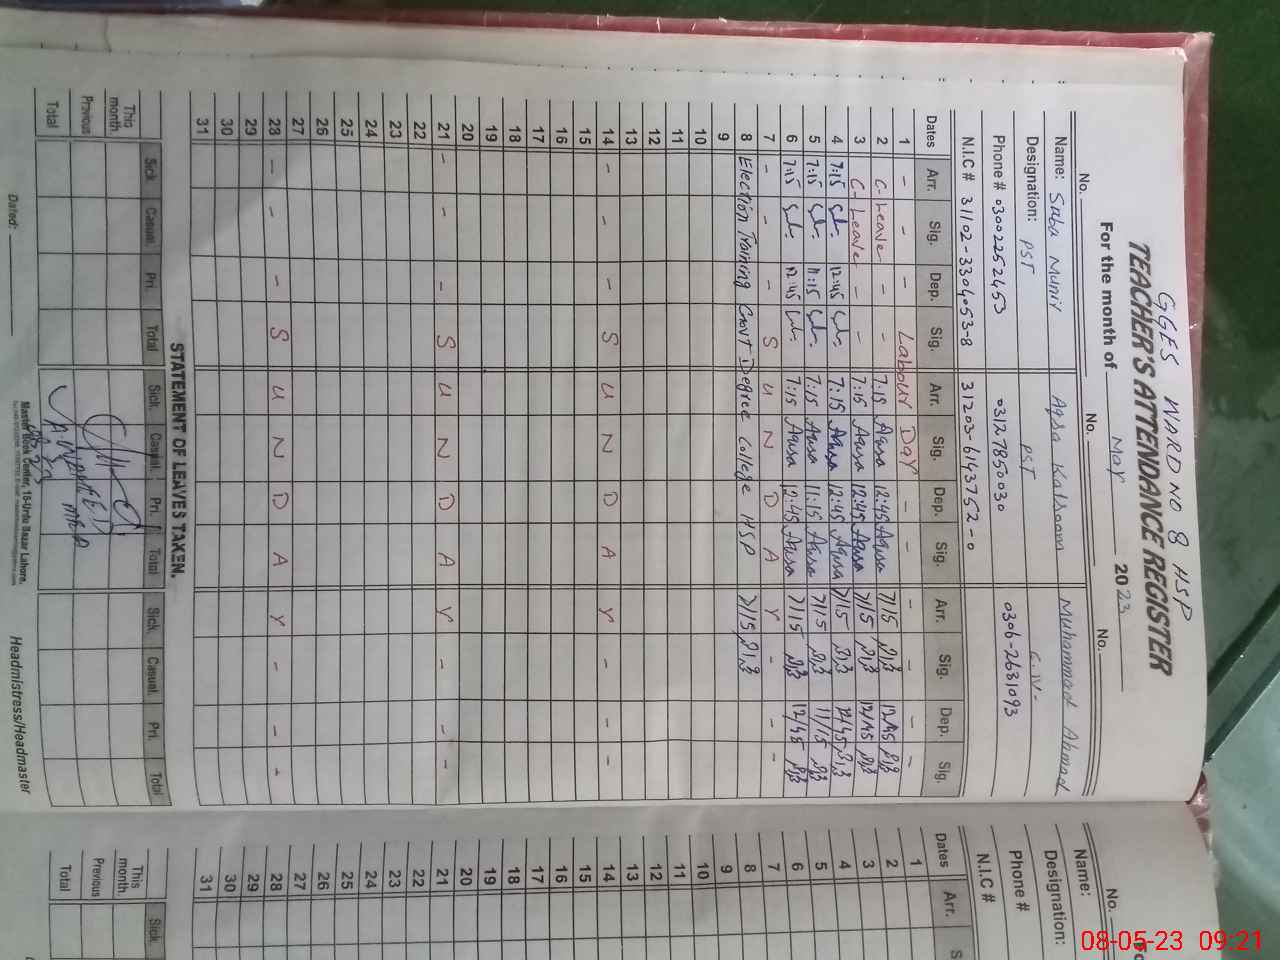 GGES WARD NO 8 HSP
TEACHER'S ATTENDANCE REGISTER
For the month of May 2023
No. No. No.
Name: Saba Munir Aqsa Kalsoom Muhammad Ahmad
Designation: PST PST C-IV-
Phone # 03002252453 03127850030 0306-2631093
N.I.C # 31102-3304053-8 31203-6143752-0
Dates Arr. Sig. Dep. Sig. Arr. Sig. Dep. Sig. Arr. Sig. Dep. Sig.
1 - - - Labour Day - - - - - -
2 C-Leave - 7:15 Aqsa 12:45 Aqsa 7/15 12/45
3 C-Leave - - 7:15 Aqsa 12:45 Aqsa 7/15 12/45
4 7:15 12:45 7:15 Aqsa 12:45 Aqsa 7/15 12/45
5 7:15 11:15 7:15 Aqsa 11:15 Aqsa 7/15 11/15
6 7:15 12:45 7:15 Aqsa 12:45 Aqsa 7/15 12/45
7 - - - S U N D A Y - - -
8 Election Training Govt Degree College HSP 7/15
9
10
11
12
13
14 - - - S U N D A Y - - -
15
16
17
18
19
20
21 - - - S U N D A Y - - -
22
23
24
25
26
27
28 - - - S U N D A Y - - -
29
30
31
STATEMENT OF LEAVES TAKEN.
Sick. Casual. Pri. Total Sick. Casual. Pri. Total Sick. Casual. Pri. Total
This month.
Previous
Total
Dated:
Master Book Center, 15-Urdu Bazar Lahore.
Headmistress/Headmaster
No.
Name:
Designation:
Phone #
N.I.C #
Dates Arr.
1
2
3
4
5
6
7
8
9
10
11
12
13
14
15
16
17
18
19
20
21
22
23
24
25
26
27
28
29
30
31
Sick.
This month.
Previous
Total
08-05-23 09:21